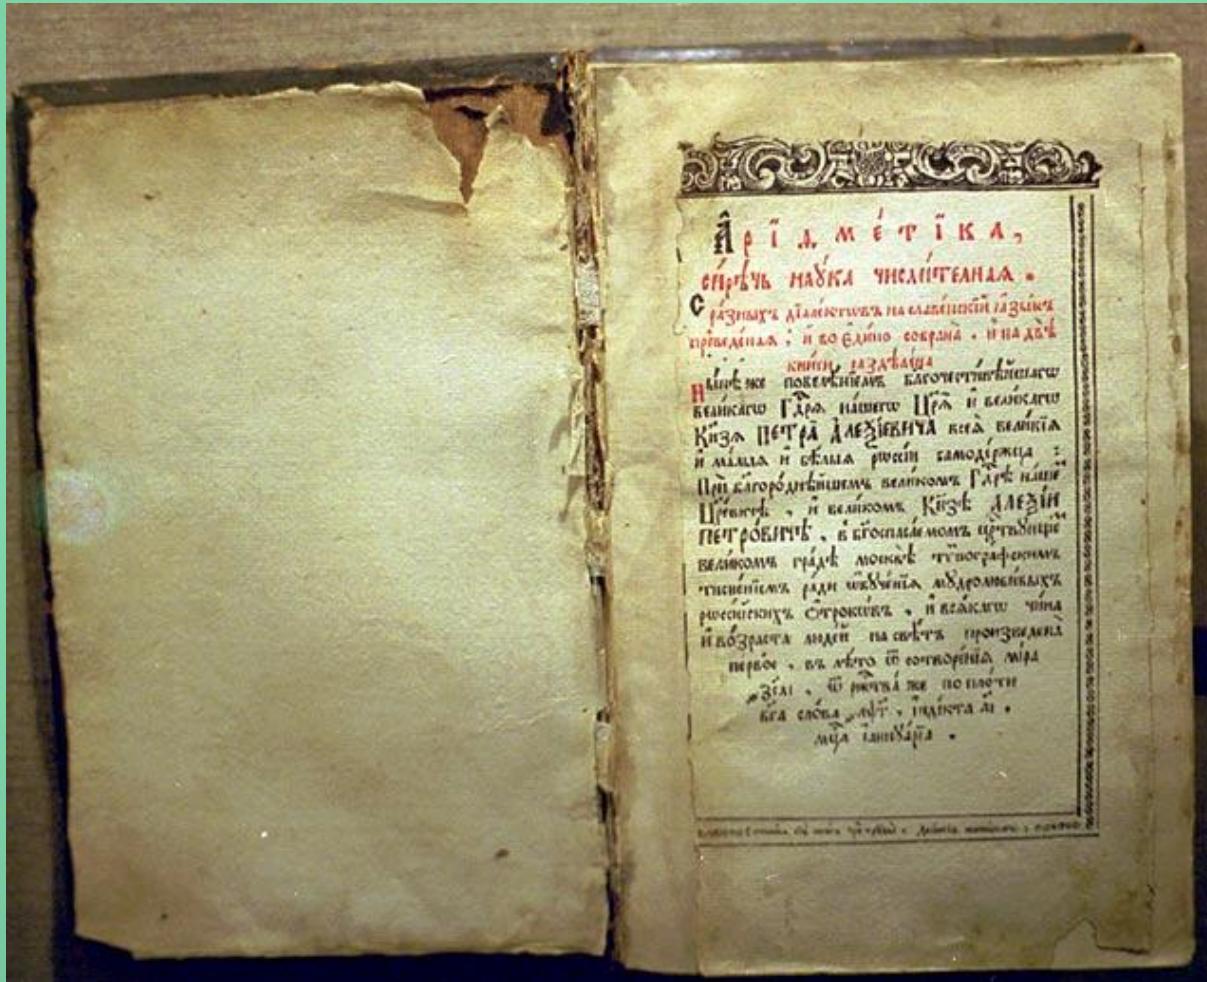 А҆рі́ѳме́тїка,
си́рѣчь наꙋ́ка числи́телная.
С ра́зныхъ дїале́ктѡвъ на славе́нскїй ꙗ҆зы́къ
преведе́ная, и҆ во є҆ди́но собрана̀, и҆ на двѣ̀
кни́ги раздѣле́на
Ны́нѣ же повелѣ́нїемъ благочести́вѣйшагѡ
вели́кагѡ Гдⷭ҇рѧ на́шегѡ Цр҃ѧ̀ и҆ вели́кагѡ
Кн҃зѧ ПЕТРА̀ А҆ЛЕѮІ́ЕВИЧА всеѧ̀ вели́кїѧ
и҆ ма́лыѧ и҆ бѣ́лыѧ рѡссі́и самоде́ржца:
Прѝ бл҃горо́днѣйшемъ вели́комъ Гдⷭ҇рѣ на́шемъ
Цр҃е́вичѣ, и҆ вели́комъ Кн҃зѣ А҆ЛЕѮІ́И
ПЕТРО́ВИЧѢ, в бг҃оспаса́емомъ црⷭ҇твꙋющемъ
вели́комъ гра́дѣ москвѣ̀ тѷпогра́фскимъ
тисне́нїемъ ра́ди ѡ҆бꙋче́нїѧ мꙋдролюби́выхъ
рѡссі́йскихъ ѻ҆́трокѡвъ, и҆ всѧ́кагѡ чи́на
и҆ во́зраста люде́й на свѣ́тъ произведена̀
пе́рвое, въ лѣ́то ѿ сотворе́нїѧ мі́ра
҂зс҃аі, ѿ ржⷭ҇тва́ же по пло́ти
бг҃а сло́ва ҂аѱг҃, їндї́кта а҃і,
мцⷭ҇а їаннꙋа́рїа.